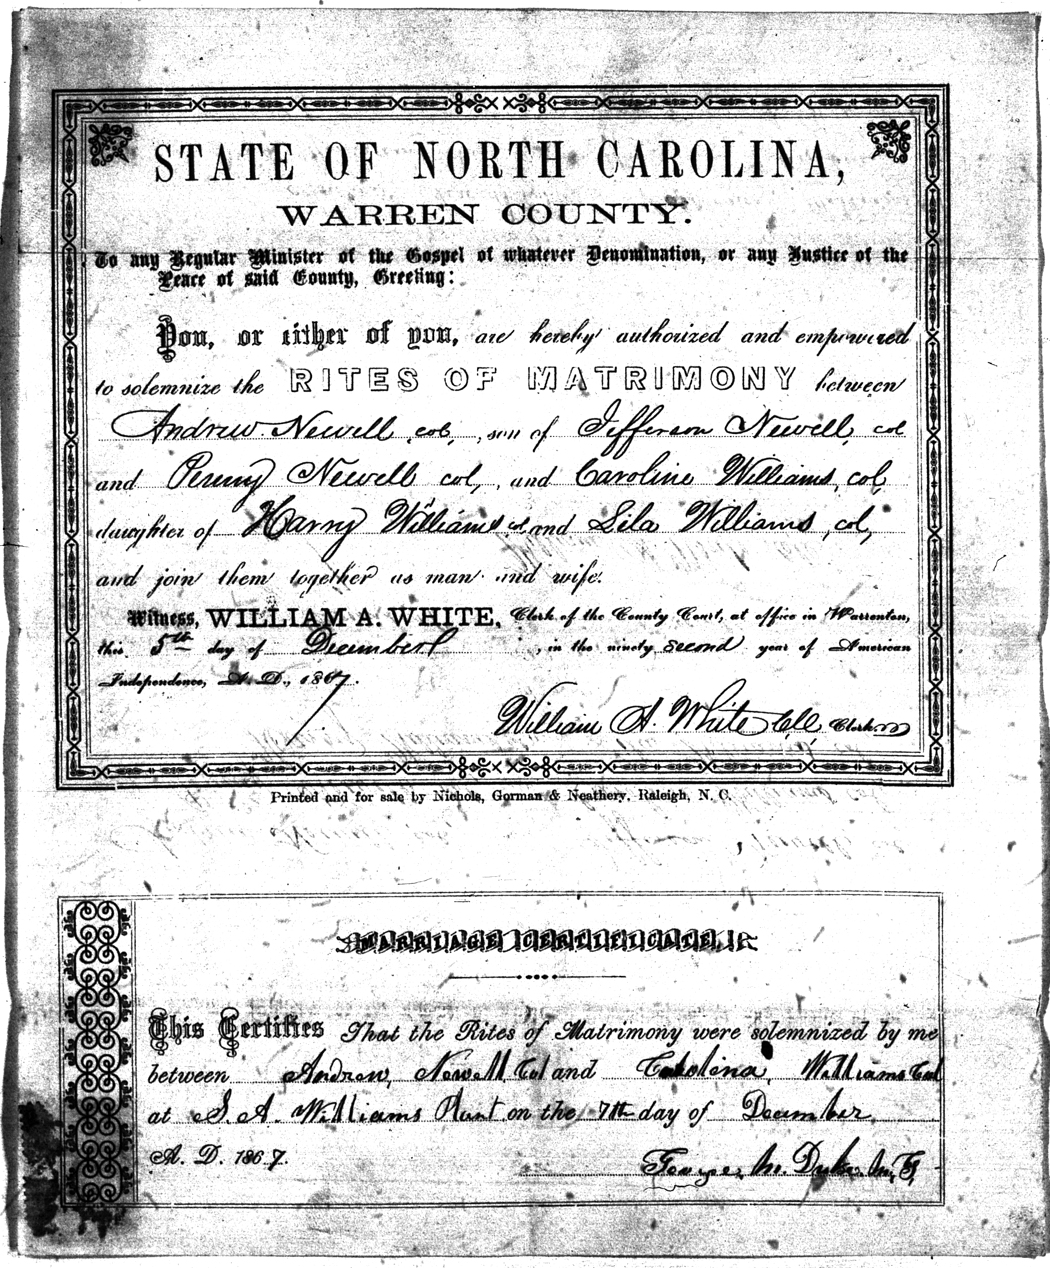 STATE OF NORTH CAROLINA,
WARREN COUNTY.
To any Regular Minister of the Gospel of whatever Denomination, or any Justice of the
Peace of said County, Greeting:
You, or either of you, are hereby authorized and empowered
to solemnize the RITES OF MATRIMONY between
Andrew Newell, col, son of Jefferson Newell, col
and Penny Newell col, and Caroline Williams, col,
daughter of Harry Williams, col and Lila Williams, col,
and join them together as man and wife.
Witness, WILLIAM A. WHITE, Clerk of the County Court, at office in Warrenton,
this 5th day of December, in the ninety second year of American
Independence, A. D., 1867.
William A. White Clerk
Printed and for sale by Nichols, Gorman & Neathery, Raleigh, N. C.
MARRIAGE CERTIFICATE.
This Certifies That the Rites of Matrimony were solemnized by me
between Andrew, Newell, Col and Carolina, Williams Col
at S. A. Williams Plant on the 7th day of December
A. D. 1867.
George, M. Duke